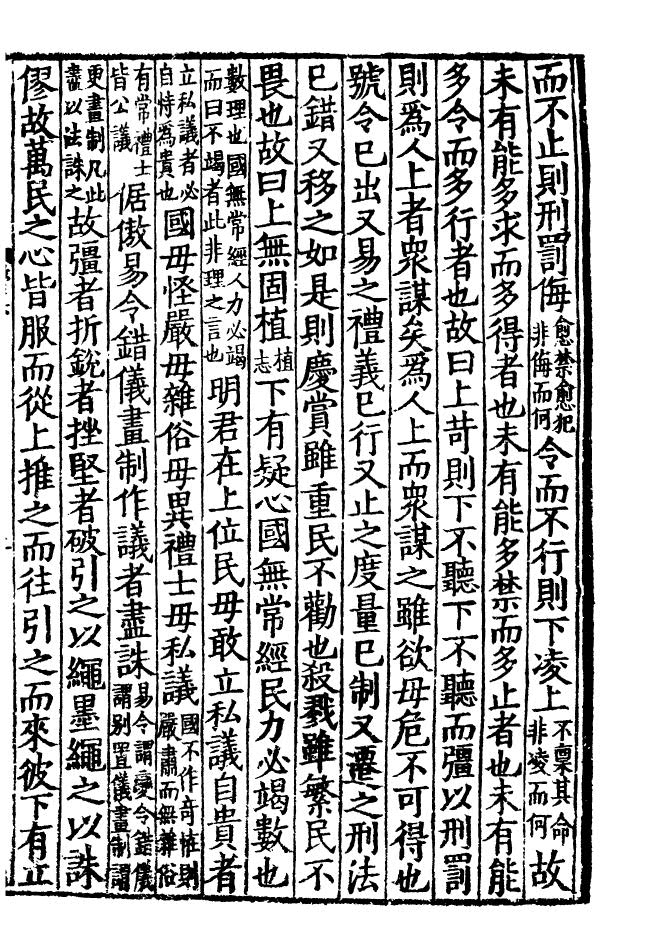 而不止則刑罰侮愈禁愈犯非侮而何令而不行則下凌上不稟其命非凌而何故
未有能多求而多得者也未有能多禁而多止者也未有能
多令而多行者也故曰上苛則下不聽下不聽而彊以刑罰
則爲人上者衆謀矣爲人上而衆謀之雖欲毋危不可得也
號令巳出又易之禮義巳行又止之度量巳制又遷之刑法
巳錯又移之如是則慶賞雖重民不勸也殺戮雖繁民不
畏也故曰上無固植植志下有疑心國無常經民力必竭數也
數理也國無常經人力必竭而曰不竭者此非理之言也明君在上位民毋敢立私議自貴者
立私議者必自恃爲貴也國毋怪嚴毋雜俗毋異禮士毋私議國不作奇怪則嚴肅而無雜俗
有常禮士皆公議倨傲易令錯儀畫制作議者盡誅易令謂變令錯儀謂别置儀畫制謂
更畫制凡此盡以法誅之故彊者折銳者挫堅者破引之以繩墨繩之以誅
僇故萬民之心皆服而從上推之而往引之而來彼下有立